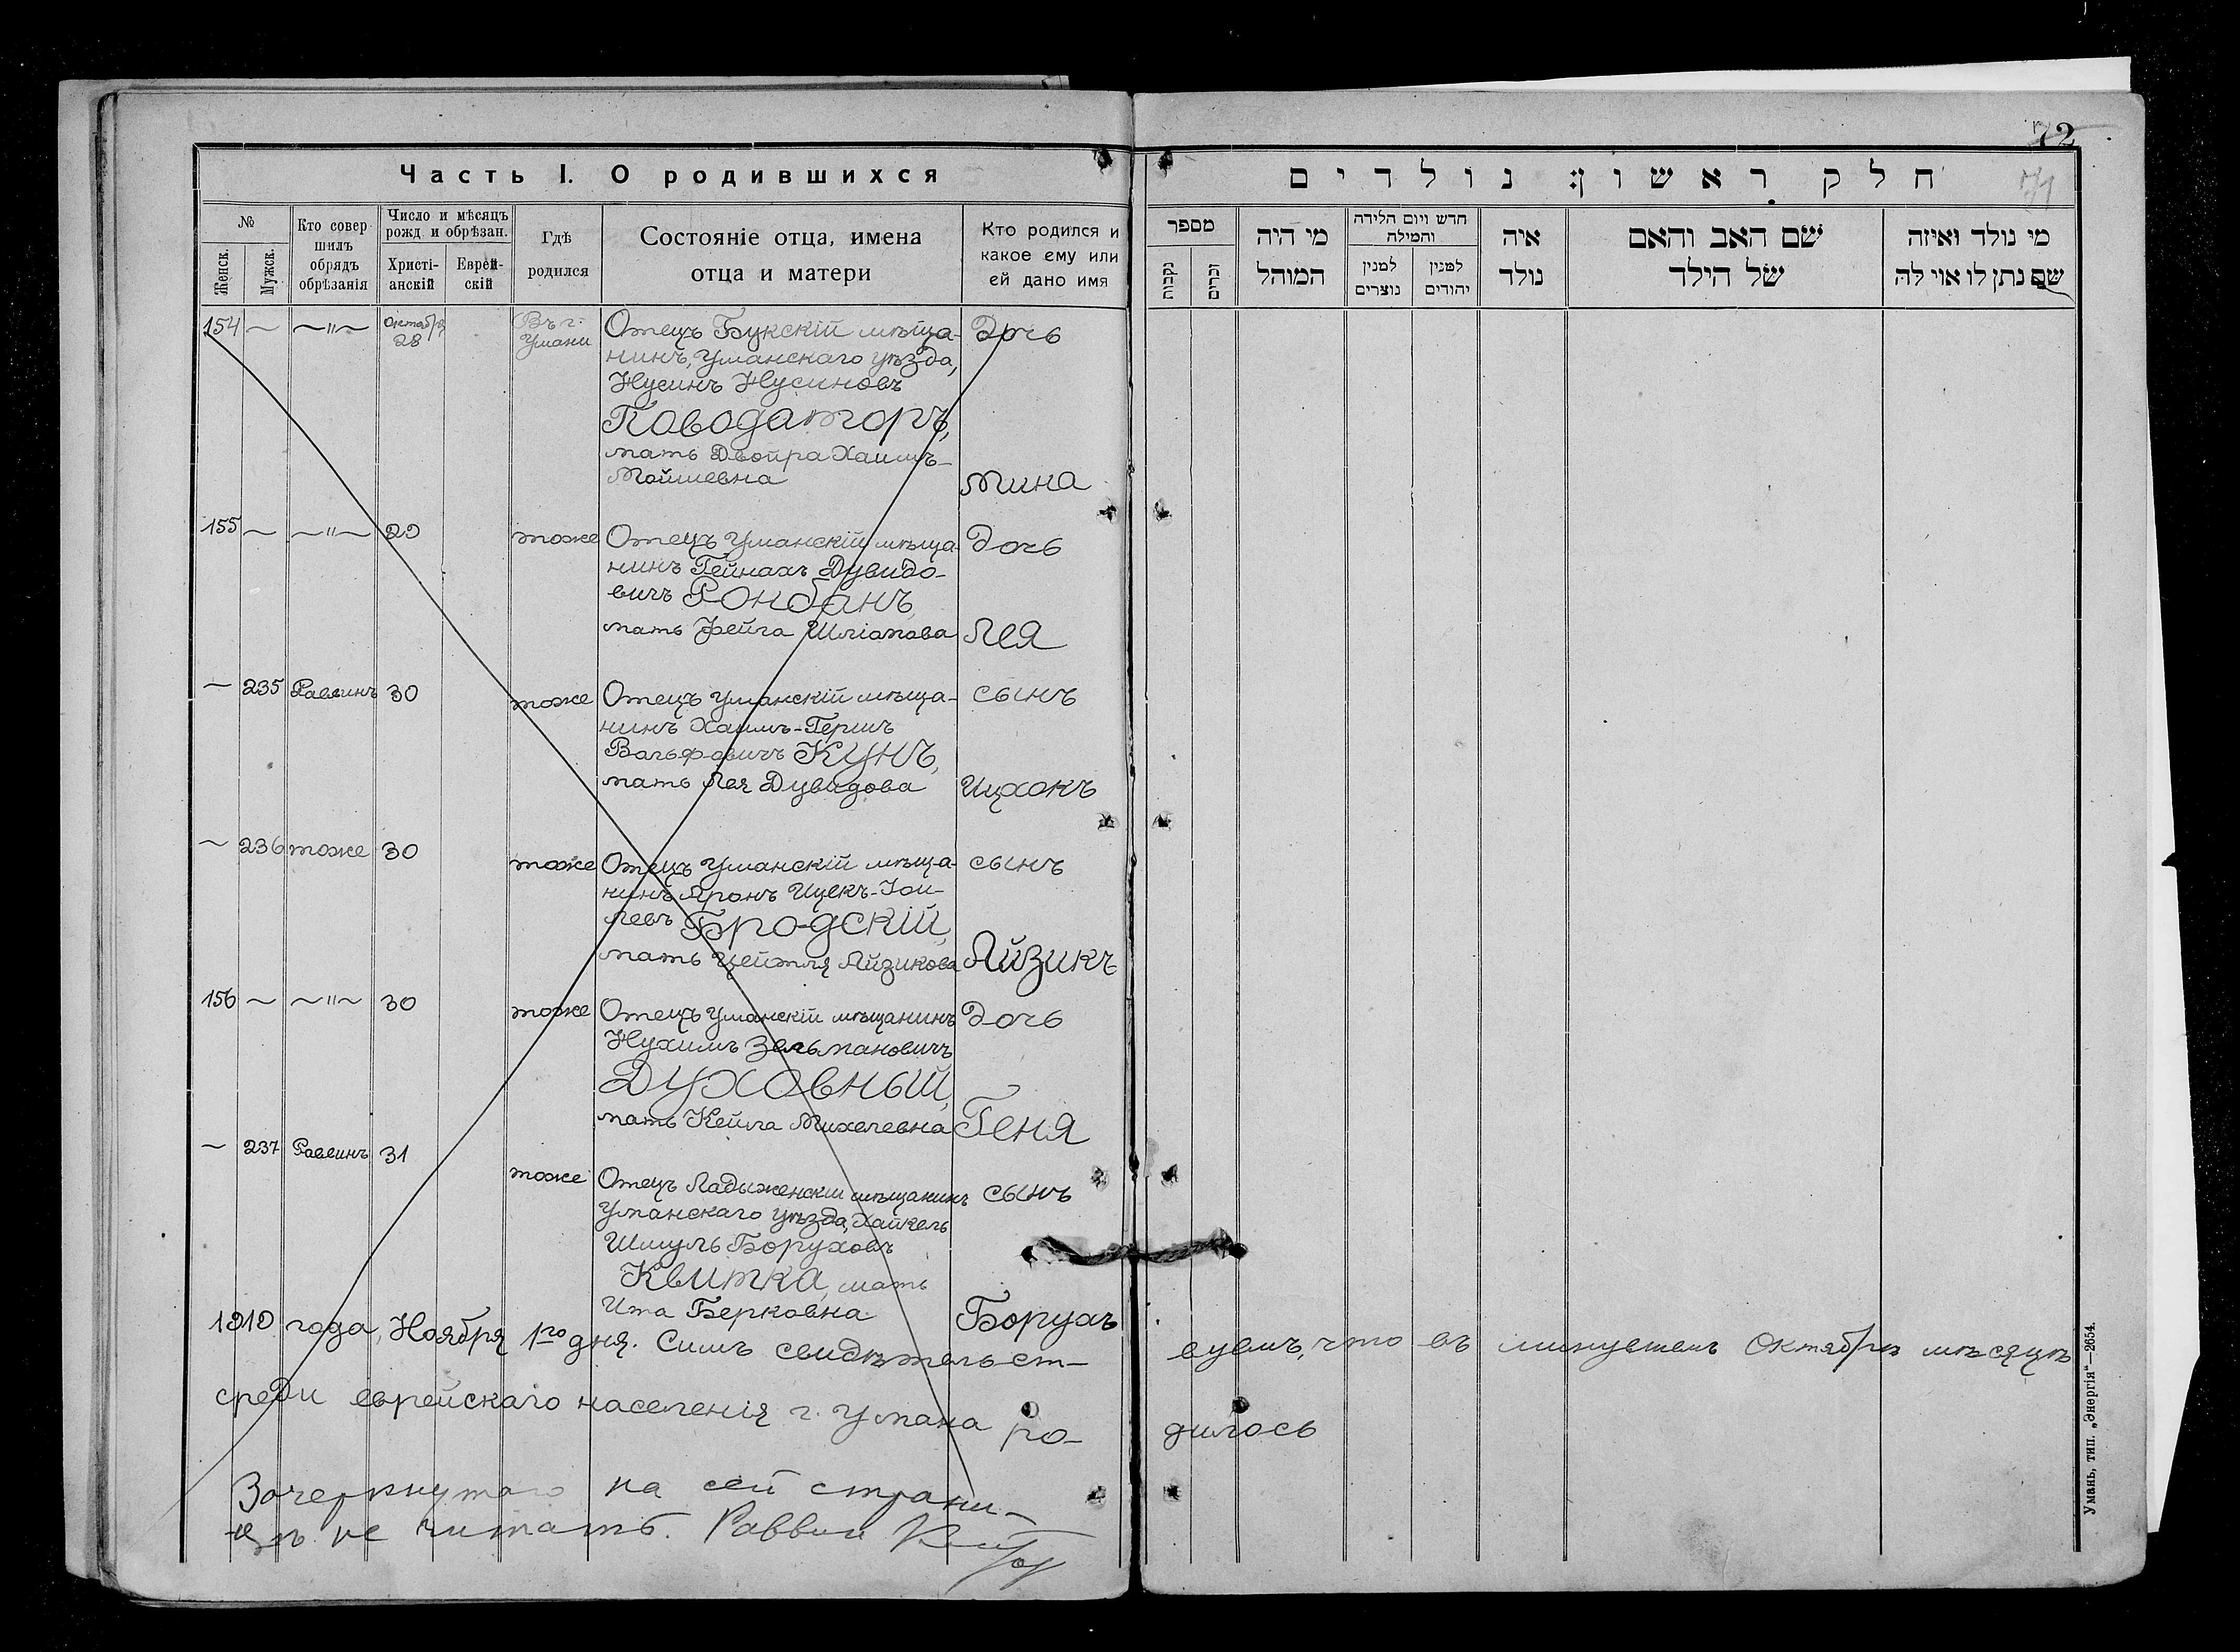 72
71
Часть I. О родившихся
№
Женск.
Мужск.
Кто совер
шилъ
обрядъ
обрѣзанія
Число и мѣсяцъ
рожд. и обрѣзан.
Христі-
анскій
Еврей-
скій
Гдѣ
родился
Состояніе отца, имена
отца и матери
Кто родился и
какое ему или
ей дано имя
154 — —"— Октября 28 Въ г. Умани Отецъ Букскій мѣща- Дочь
нинъ, Уманскаго уѣзда,
Нусинъ Нусиновъ
Поводаторъ,
мать Двойра Хаимъ-
Мойшевна Мина
155 — —"— 29 тоже Отецъ Уманскій мѣща- дочь
нинъ Гейнахъ Дувидо-
вичъ Ронбанъ,
мать Фейга Шліомова Лея
— 235 Раввинъ 30 тоже Отецъ Уманскій мѣща- сынъ
нинъ Хаимъ-Гершъ
Вольфовичъ Кунъ,
мать Лея Дувидова Ицхокъ
— 236 тоже 30 тоже Отецъ Уманскій мѣща- сынъ
нинъ Аронъ Ицекъ-Іои-
левъ Бродскій,
мать Цейтля Айзикова Айзикъ
156 — —"— 30 тоже Отецъ Уманскій мѣщанинъ дочь
Нухимъ Зельмановичъ
Духовный,
мать Кейла Михелевна Геня
— 237 Раввинъ 31 тоже Отецъ Ладыженскій мѣщанинъ сынъ
Уманскаго уѣзда, Хайкель
Шмуль Боруховъ
Квитка, мать
Ита Берковна Борухъ
1910 года, Ноября 1го дня. Симъ свидѣтельст-
вуемъ, что въ минувшемъ Октябрѣ мѣсяцѣ
среди еврейскаго населенія г. Умана ро-
дилось
Зачеркнутаго на сей страни-
цѣ не читать. Раввин
חלק ראשון: נולדים
מספר
נקבות
זכרים
מי היה
המוהל
חדש ויום הלידה
והמילה
למנין
נוצרים
למנין
יהודים
איה
נולד
שם האב והאם
של הילד
מי נולד ואיזה
שם נתן לו אוי לה
Умань, тип. „Энергія“—2654.